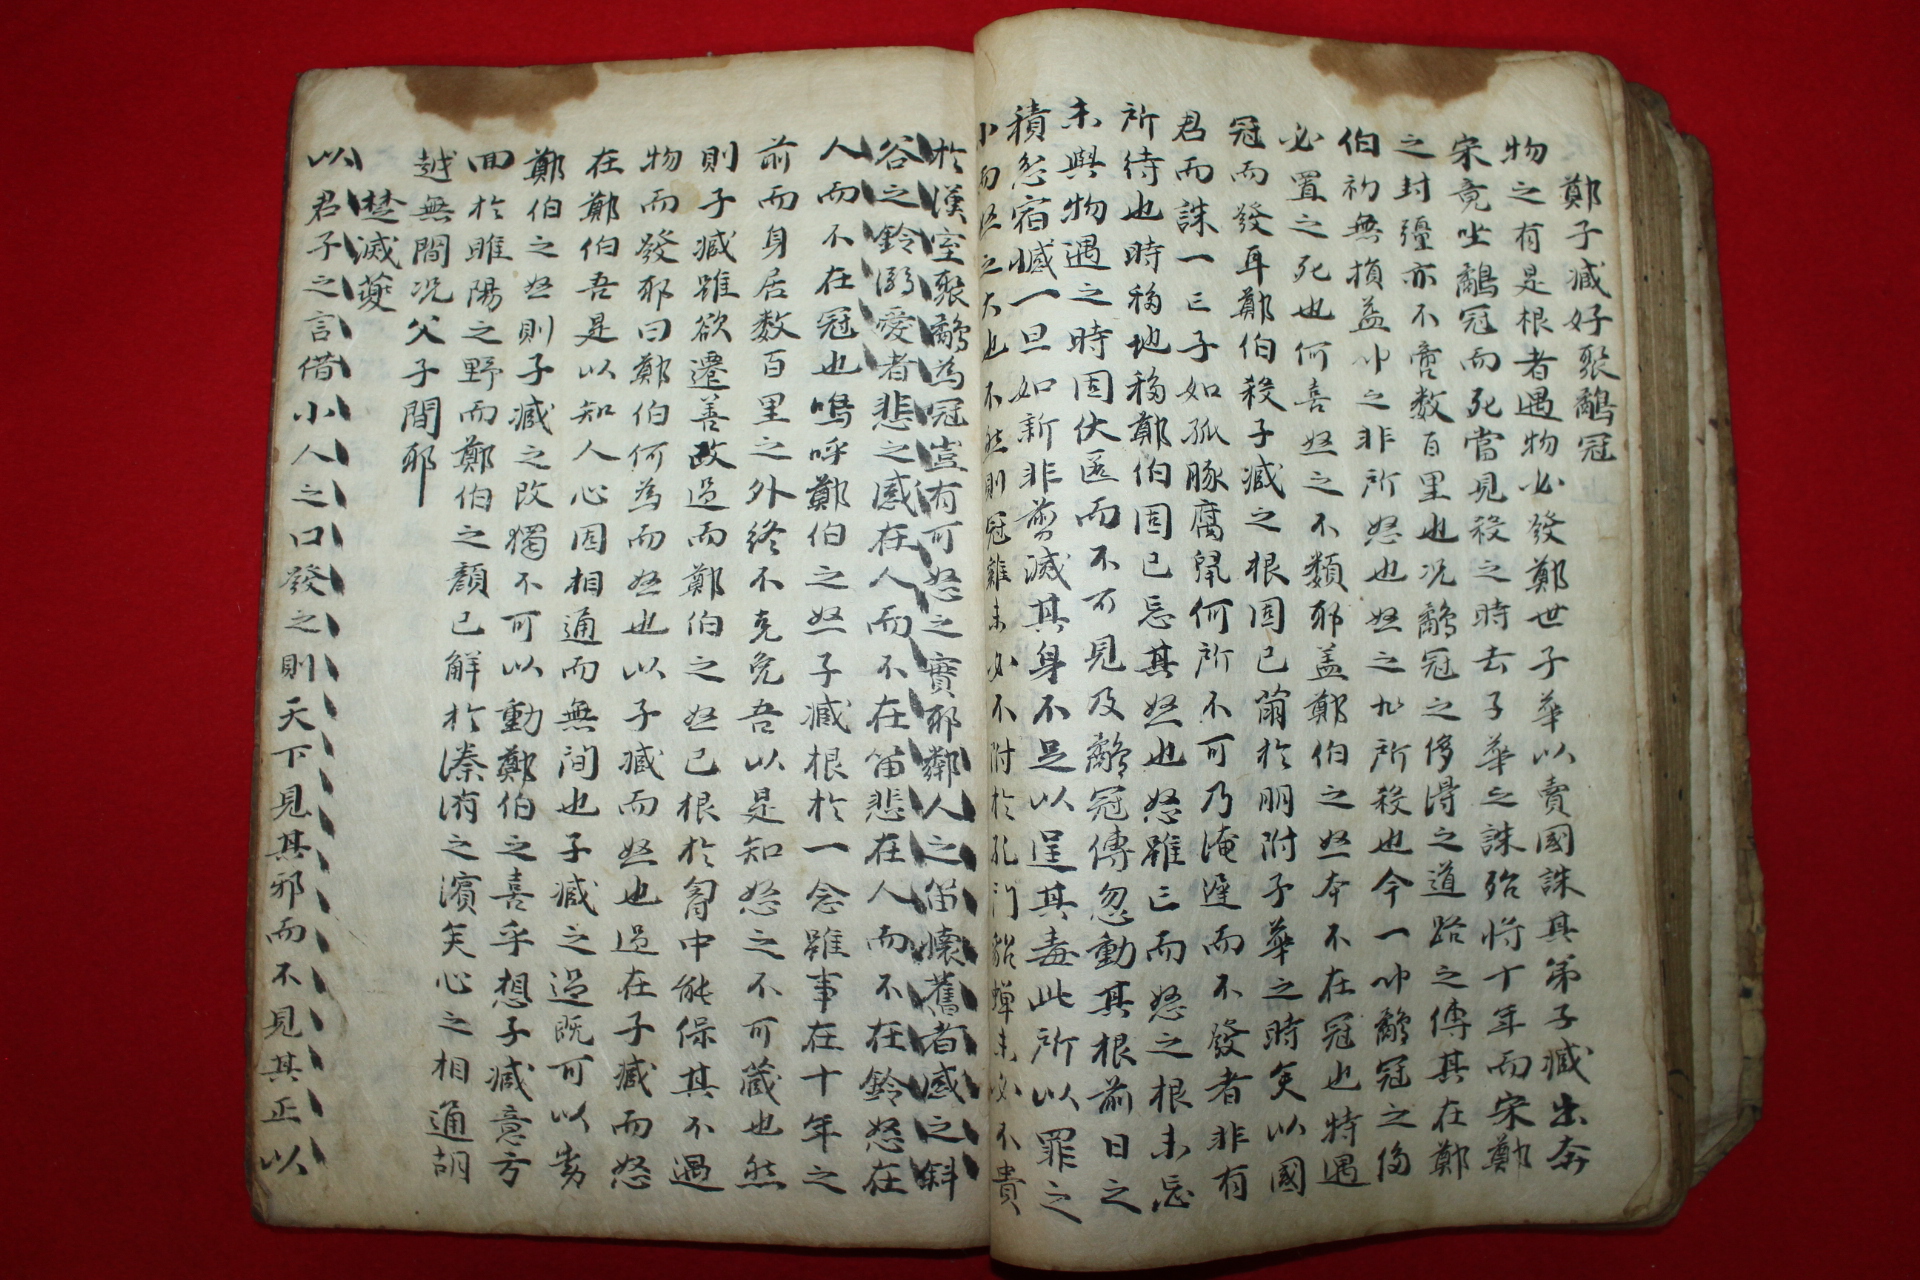 鄭子臧好聚鷸冠
物之有是根者遇物必發鄭世子華以賣國誅其弟子臧出奔
宋竟坐鷸冠而死當見殺之時去子華之誅殆將十年而宋鄭
之封彊亦不啻数百里也况鷸冠之侈得之道路之傳其在鄭
伯初無損益叩之非所怒也怒之非所殺也今一叩鷸冠之侈
必置之死也何喜怒之不類邪盖鄭伯之怒本不在冠也特遇
冠而發耳鄭伯殺子臧之根固已萌於朋附子華之時矣以國
君而誅一亡子如孤豚腐鼠何所不可乃淹遲而不發者非有
所待也時移地移鄭伯固已忘其怒也怒雖亡而怒之根未忘
未與物遇之時固伏匿而不可見及鷸冠傳忽動其根前日之
積忿宿憾一旦如新非剪滅其身不足以逞其毒此所以罪之
小而怒之大也不然則冠雞未必不附於孔門貂蟬未必不貴
於漢室聚鷸為冠豈有可怒之實邪鄰人之笛懷舊者感之斜
谷之鈴溺愛者悲之感在人而不在笛悲在人而不在鈴怒在
人而不在冠也嗚呼鄭伯之怒子臧根於一念雖事在十年之
前而身居数百里之外終不克免吾以是知怒之不可蔵也然
則子臧雖欲遷善改過而鄭伯之怒已根於胷中能保其不遇
物而發邪曰鄭伯何為而怒也以子臧而怒也過在子臧而怒
在鄭伯吾是以知人心固相通而無间也子臧之過既可以勞
鄭伯之怒則子臧之改獨不可以動鄭伯之喜乎想子臧意方
回於睢陽之野而鄭伯之顔已解於溱洧之濱矣心之相通胡
越無間况父子間邪
楚滅夔
以君子之言借小人之口發之則天下見其邪而不見其正以